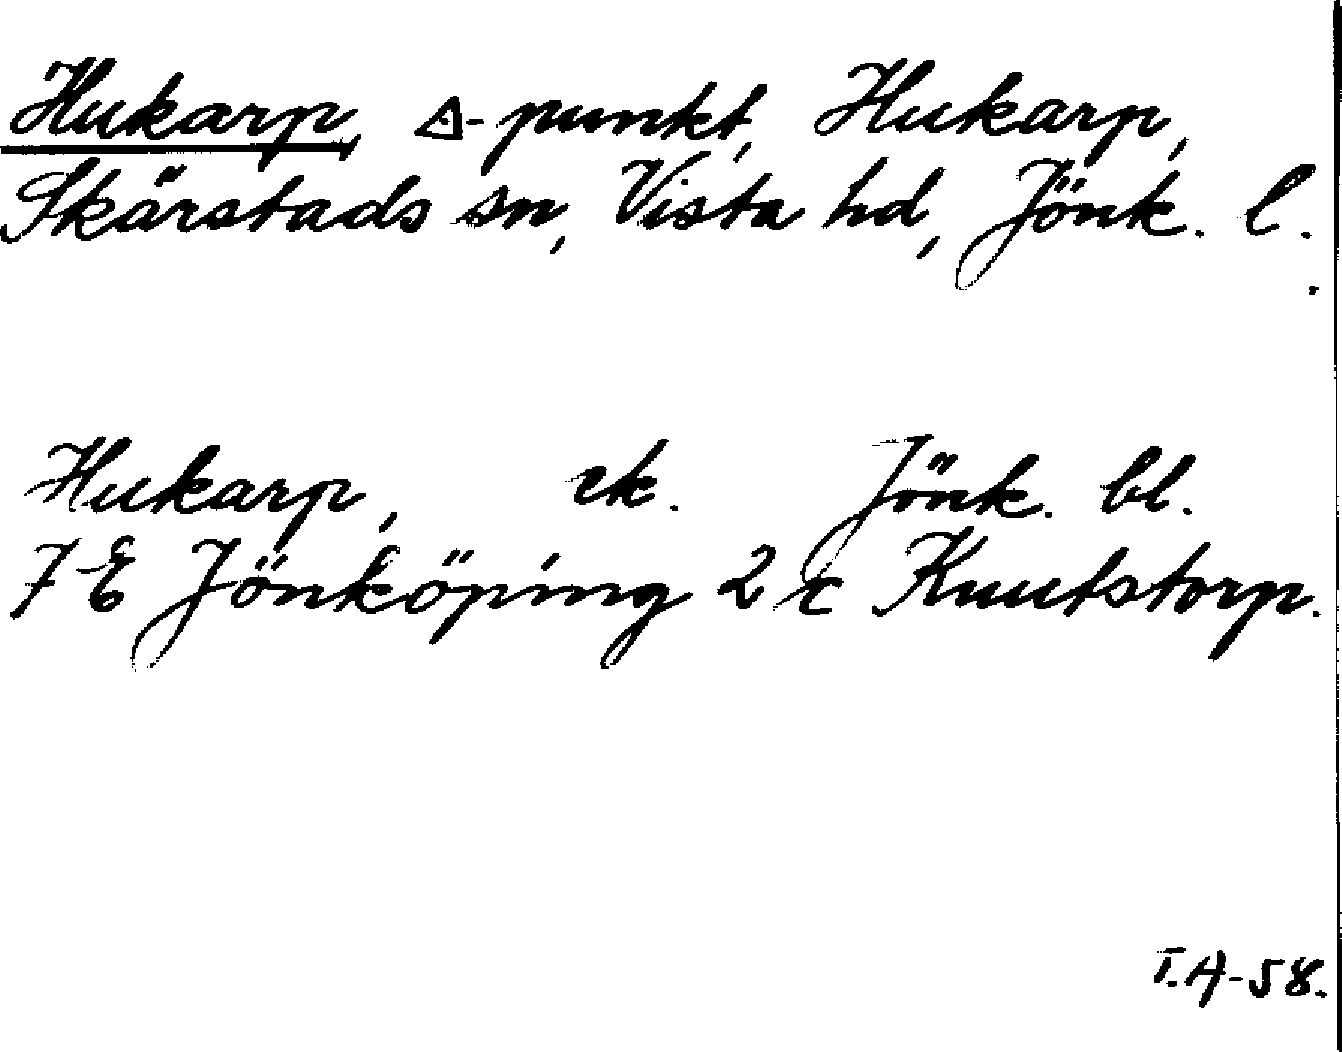 Hukarp, △-punkt, Hukarp,
Skärstads sn, Vista hd, Jönk. l.
Hukarp, ek. Jönk. bl.
7 E Jönköping 2 c Knutstorp.
I.A-58.